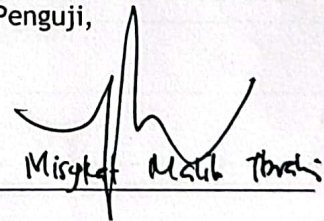 Penguji,
Misykat Malik Ibrahi